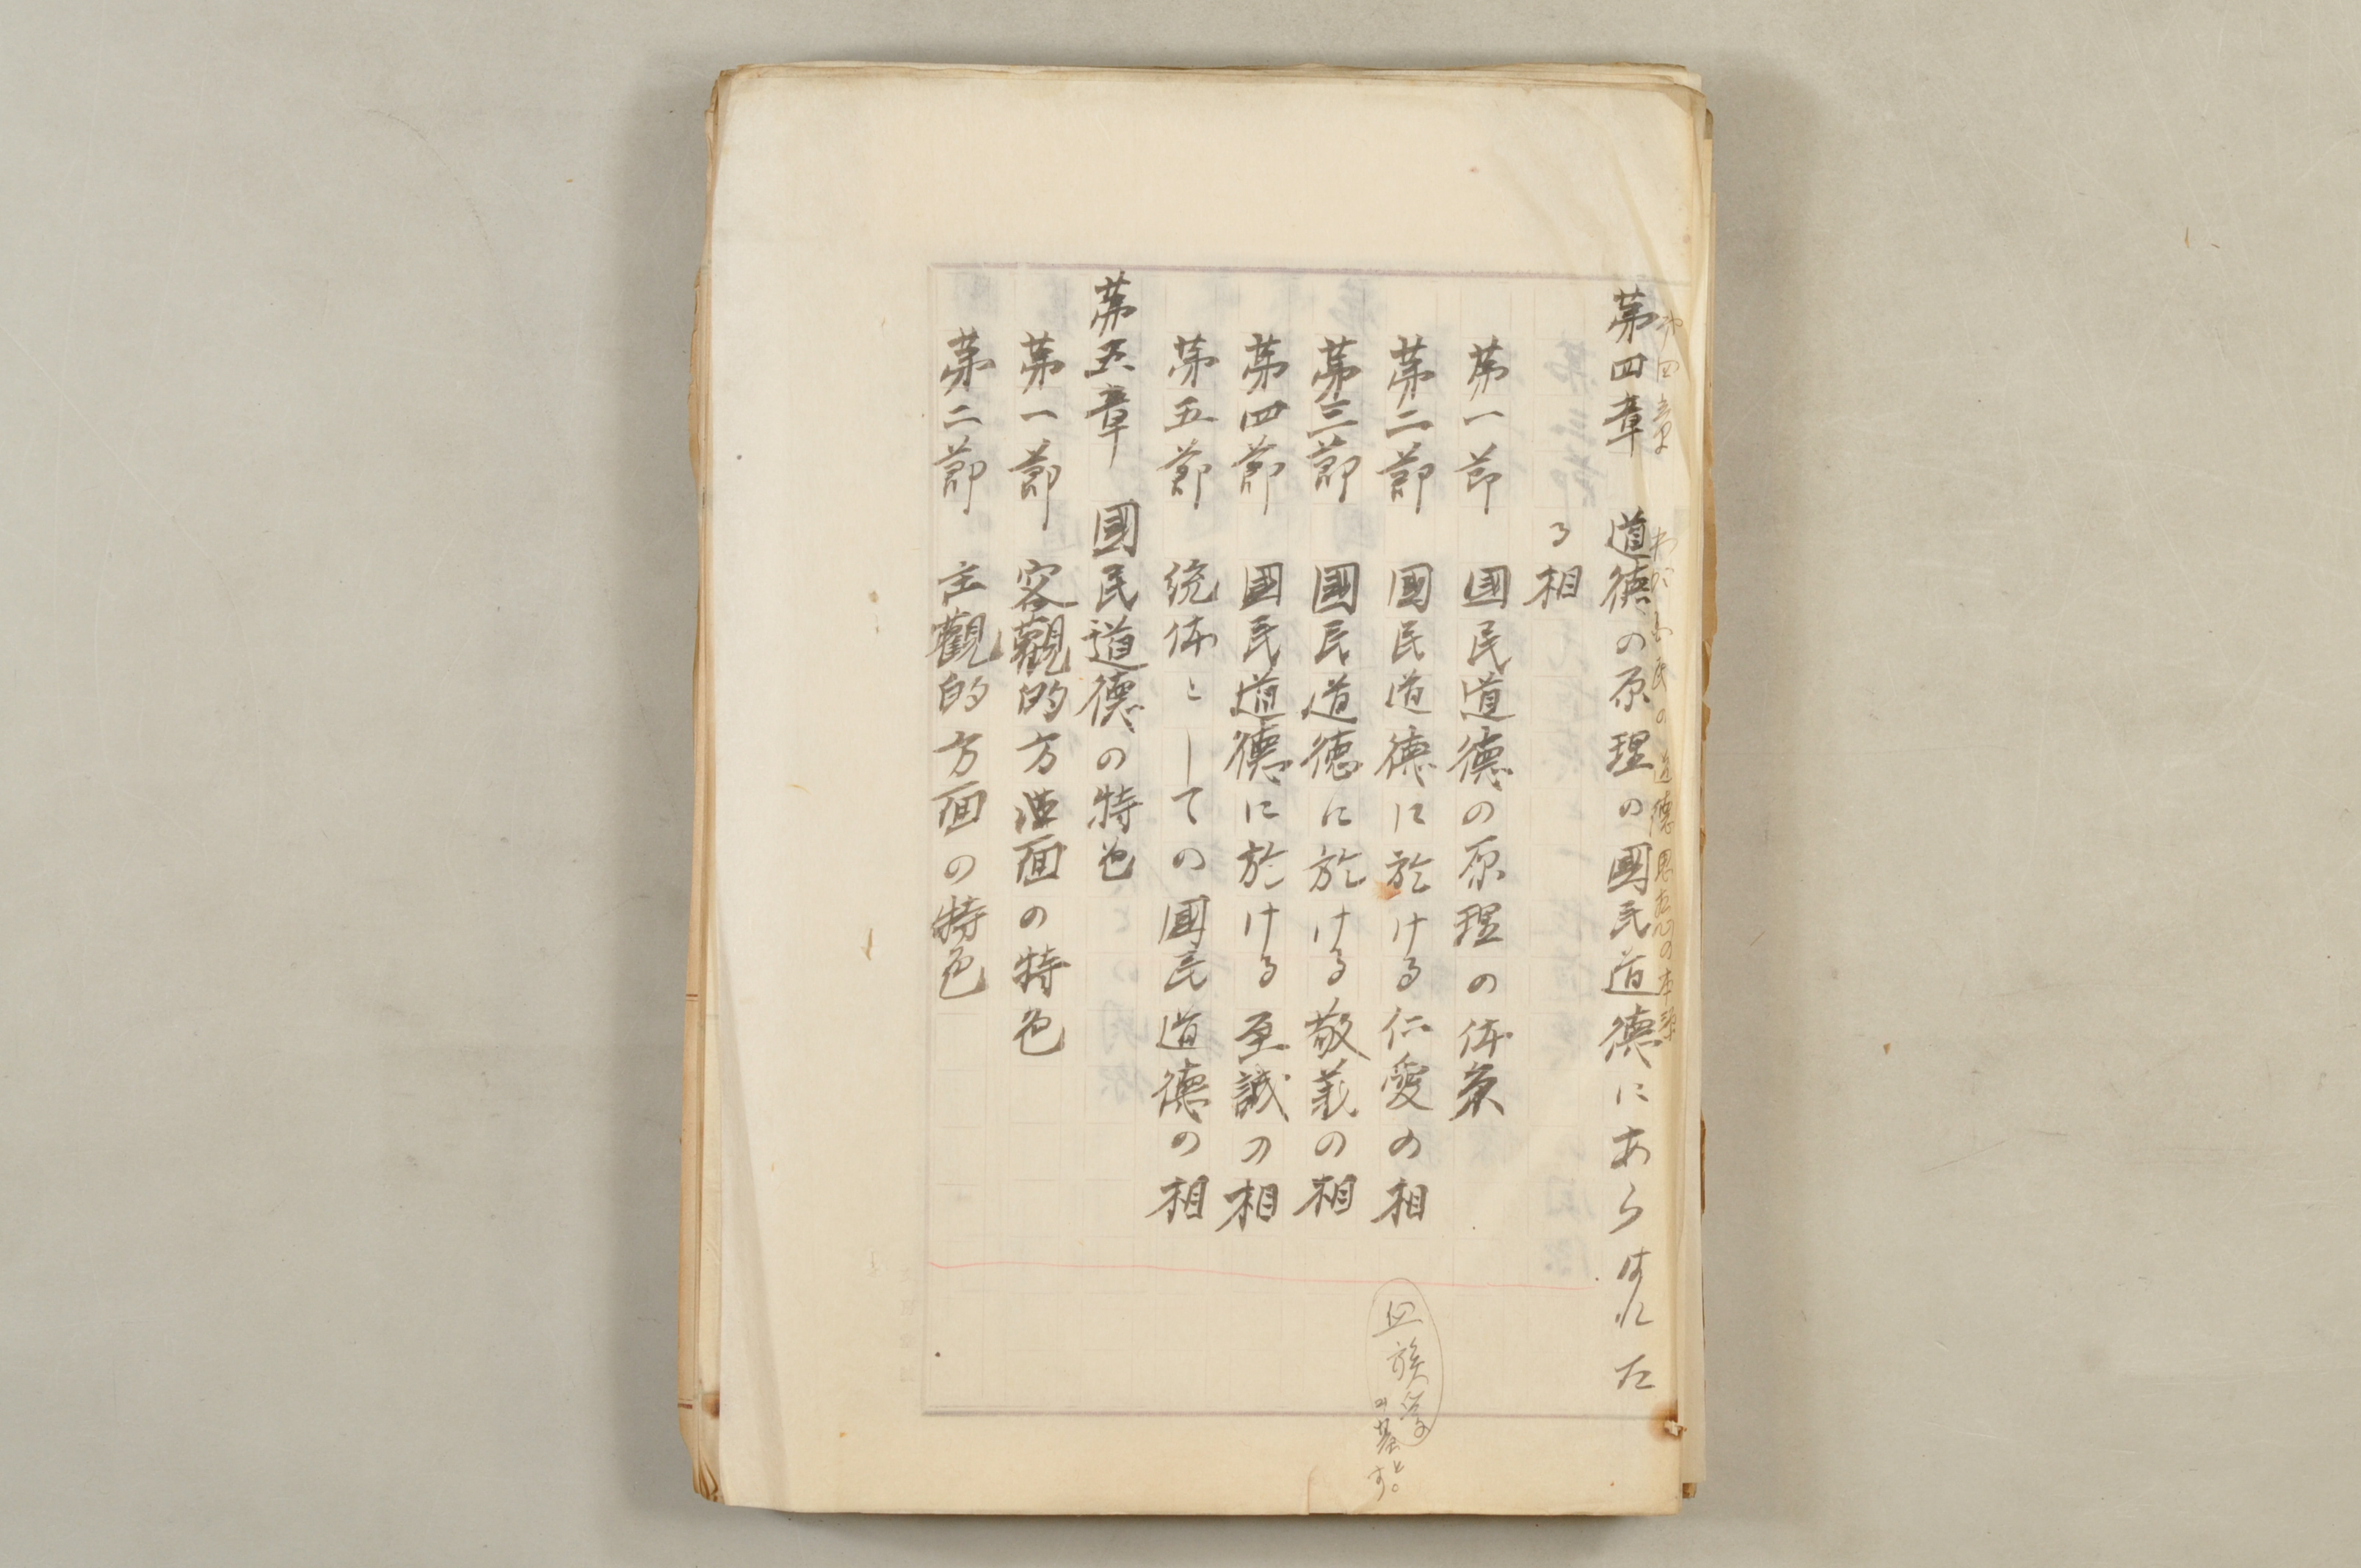 第四章　わが国民の道徳思想の本源
第四章　道徳の原理の國民道徳にあらはれた
る相
第一節　国民道徳の原理の体系
第二節　國民道徳に於ける仁愛の相
第三節　國民道徳に於ける敬義の相
第四節　國民道徳に於ける至誠の相
第五節　統体としての國民道徳の相
第五章　國民道徳の特色
第一節　客觀的方面の特色
第二節　主觀的方面の特色
血族
を基とす。